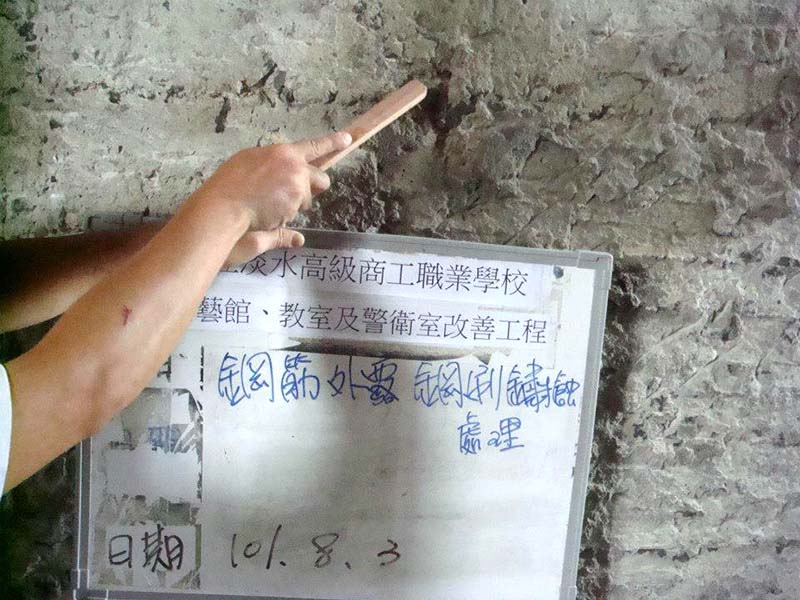 淡水高級商工職業學校
藝館、教室及警衛室改善工程
鋼筋外露 鋼刷鏽蝕
處理
日期 101.8.3